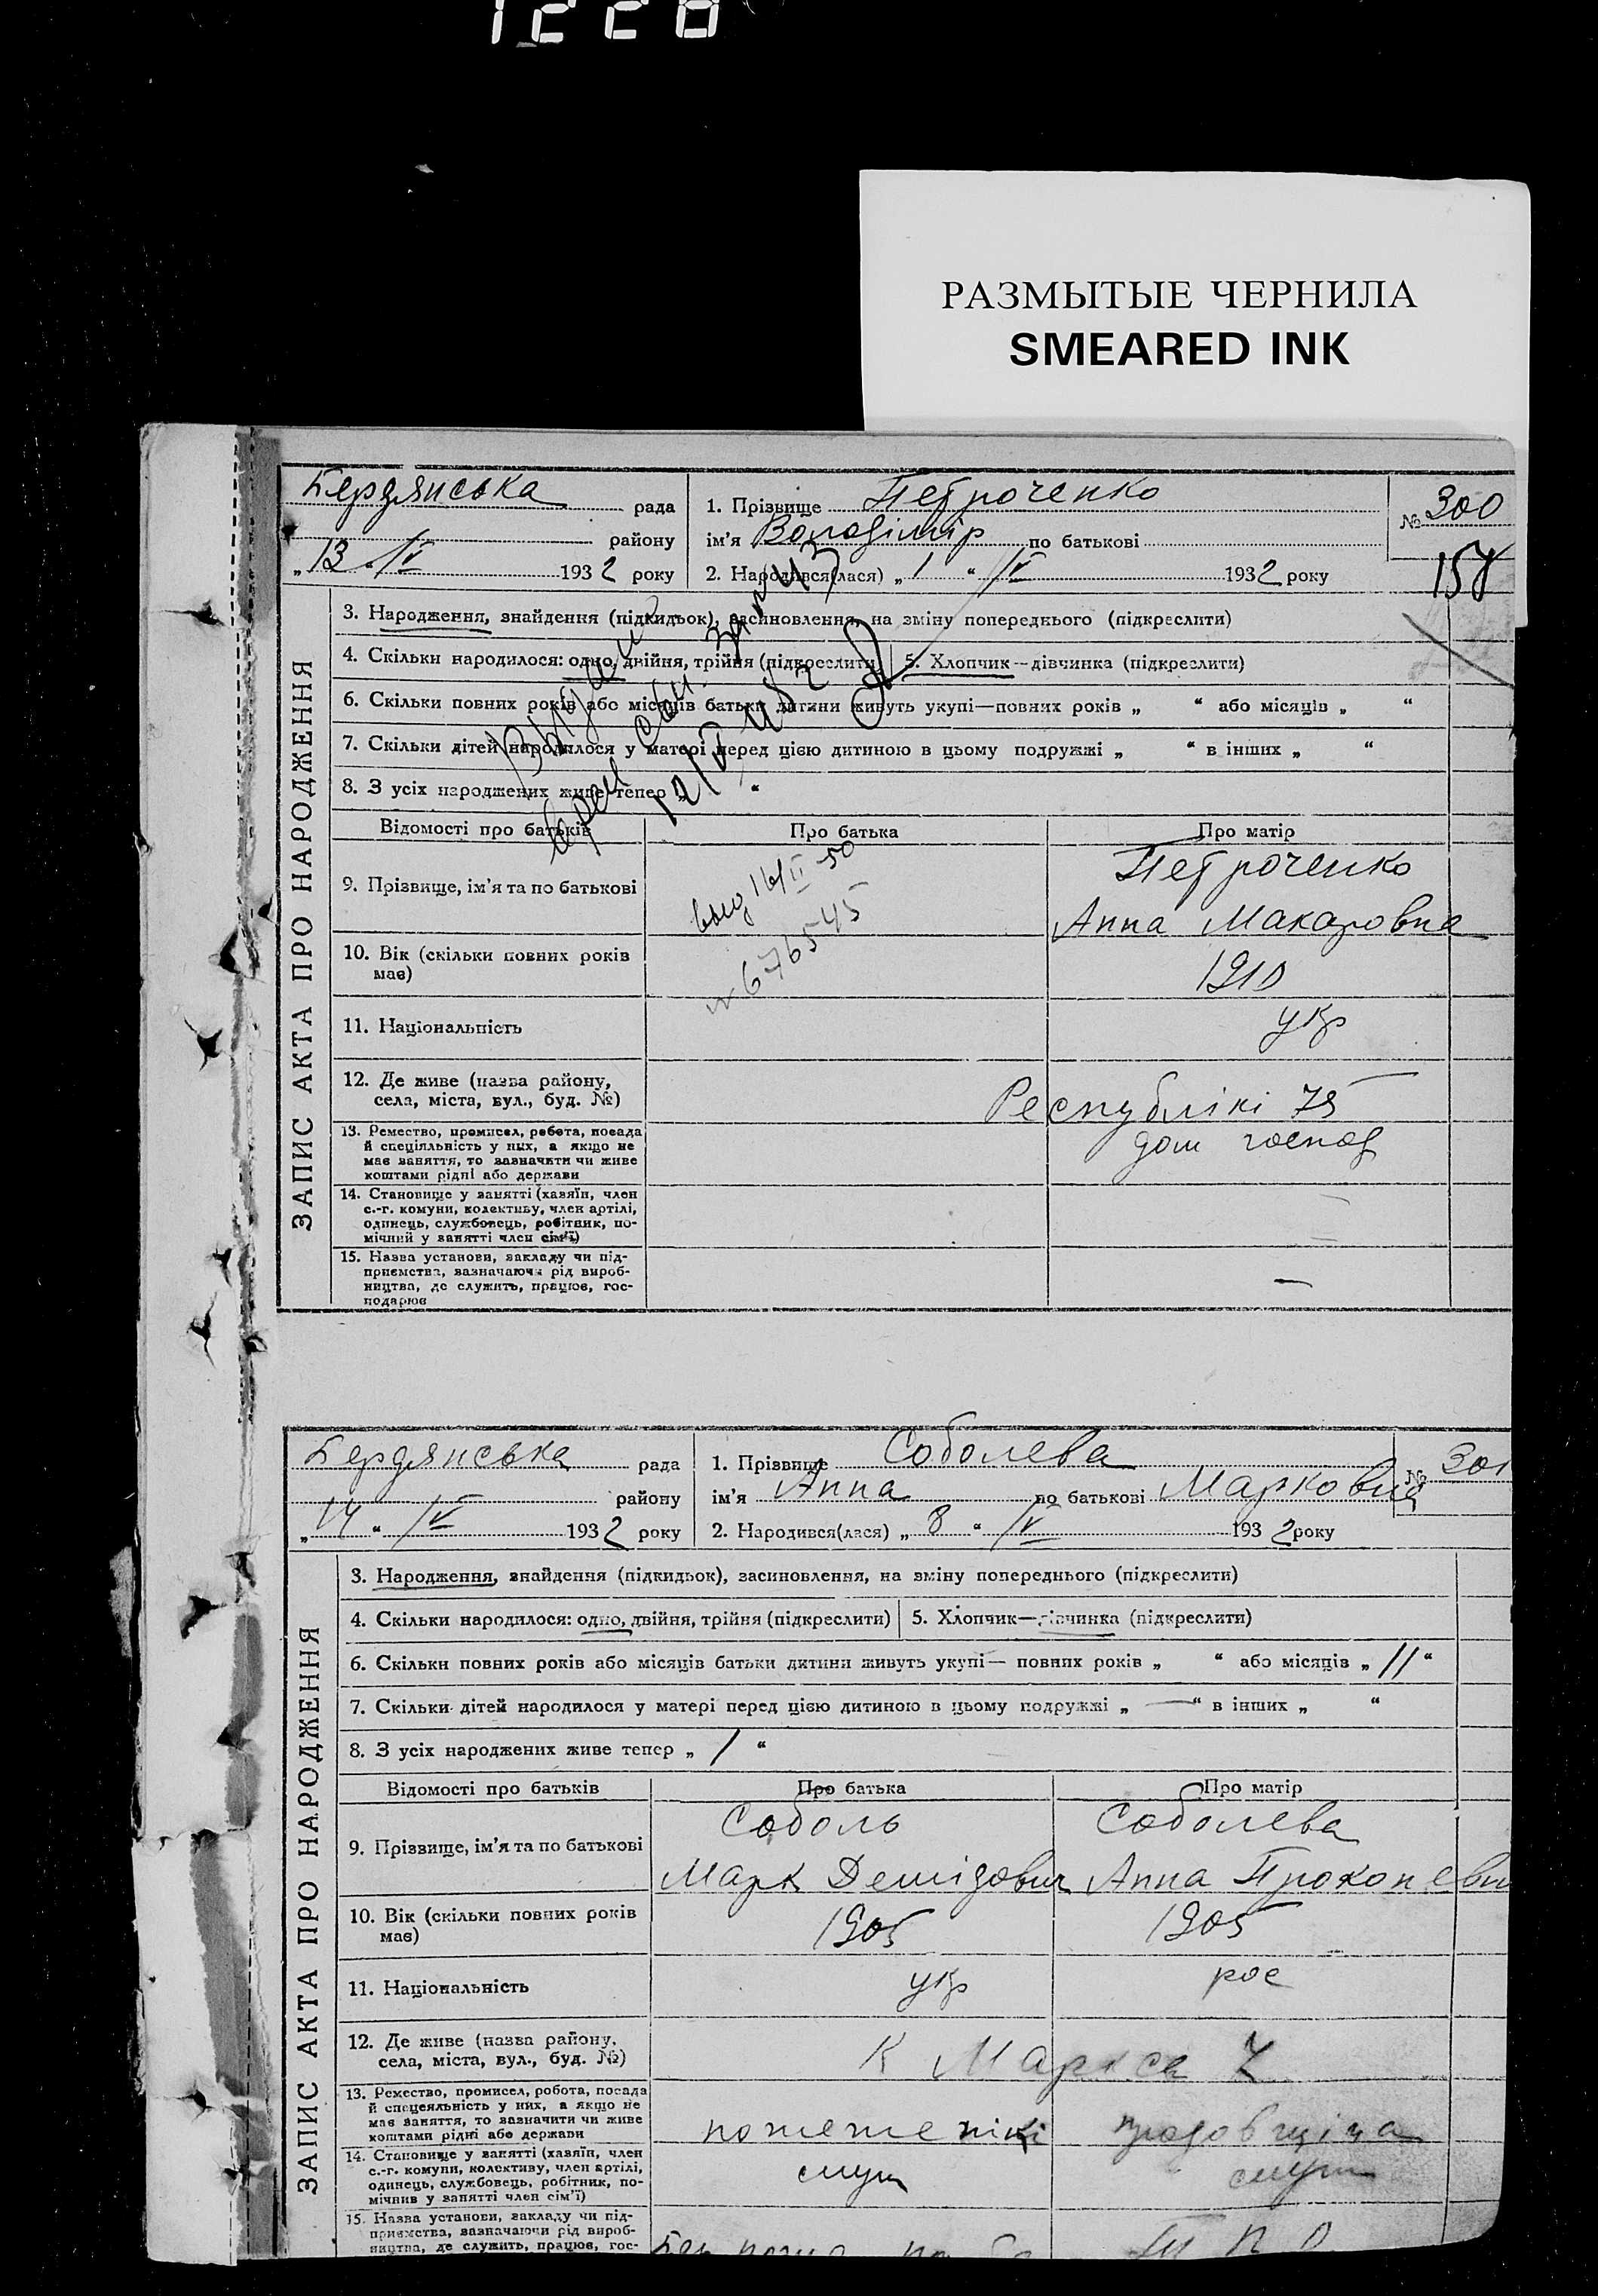 1228
РАЗМЫТЫЕ ЧЕРНИЛА
SMEARED INK
Бердянська рада
району
„13 " IV 1932 року
1. Прізвище Петроченко
ім'я Володімір по батькові
2. Народився(лася) „1 " IV 1932 року
№ 300
158
ЗАПИС АКТА ПРО НАРОДЖЕННЯ
3. Народження, знайдення (підкидьок), засиновлення, на зміну попереднього (підкреслити)
4. Скільки народилося: одно, двійня, трійня (підкреслити) 5. Хлопчик—дівчинка (підкреслити)
6. Скільки повних років або місяців батьки дитини живуть укупі—повних років „ " або місяців „ "
7. Скільки дітей народилося у матері перед цією дитиною в цьому подружжі „ " в інших „ "
8. З усіх народжених живе тепер „ "
Відомості про батьків Про батька Про матір
9. Прізвище, ім'я та по батькові
Петроченко
Анна Макаровна
выд 16/II-50
№ 676545
10. Вік (скільки повних років має) 1910
11. Національність укр
12. Де живе (назва району, села, міста, вул., буд. №) Республікі 75
13. Ремество, промисел, робота, посада
й спеціяльність у них, а якщо не
має заняття, то зазначити чи живе
коштами рідні або держави
дом господ
14. Становище у занятті (хазяїн, член
с.-г. комуни, колективу, член артілі,
одинець, службовець, робітник, по-
мічний у занятті член сім'ї)
—
15. Назва установи, закладу чи під-
приємства, зазначаючи рід вироб-
ництва, де служить, працює, гос-
подарює
—
Бердянська рада
району
„14 " IV 1932 року
1. Прізвище Соболева
ім'я Анна по батькові Марковна
2. Народився(лася) „8 " IV 1932 року
№ 301
ЗАПИС АКТА ПРО НАРОДЖЕННЯ
3. Народження, знайдення (підкидьок), засиновлення, на зміну попереднього (підкреслити)
4. Скільки народилося: одно, двійня, трійня (підкреслити) 5. Хлопчик—дівчинка (підкреслити)
6. Скільки повних років або місяців батьки дитини живуть укупі— повних років „ " або місяців „ 11 "
7. Скільки дітей народилося у матері перед цією дитиною в цьому подружжі „ — " в інших „ "
8. З усіх народжених живе тепер „ 1 "
Відомості про батьків Про батька Про матір
9. Прізвище, ім'я та по батькові
Соболь Соболева
Марк Демідович Анна Прокопевн
10. Вік (скільки повних років має) 1905 1905
11. Національність укр рос
12. Де живе (назва району, села, міста, вул., буд. №) К Маркса 7
13. Ремество, промисел, робота, посада
й спецеяльність у них, а якщо не
має заняття, то зазначити чи живе
коштами рідні або держави
продовщіца
14. Становище у занятті (хазяїн, член
с.-г. комуни, колективу, член артілі,
одинець, службовець, робітник, по-
мічнив у занятті член сім'ї)
служ служ
15. Назва установи, закладу чи під-
приємства, зазначаючи рід вироб-
ництва, де служить, працює, гос-